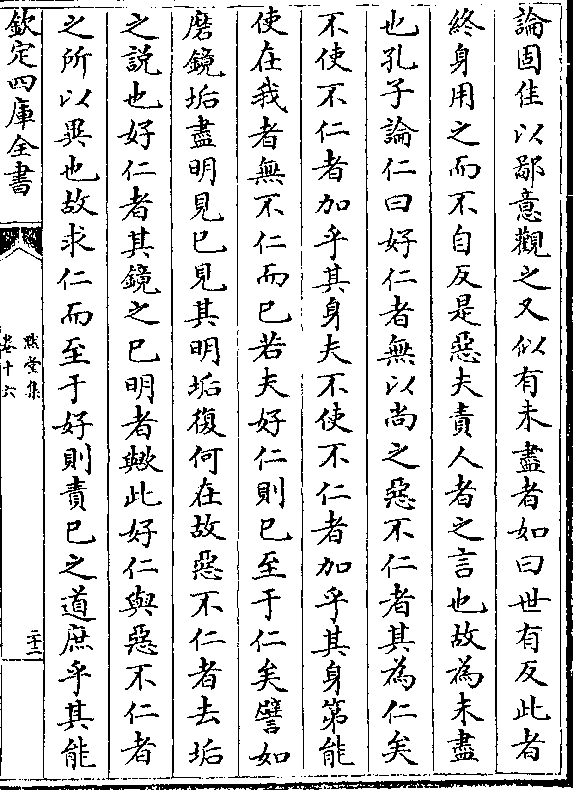 論固佳以鄙意觀之又似有未盡者如曰世有反此者
終身用之而不自反是惡夫責人者之言也故為未盡
也孔子論仁曰好仁者無以尚之惡不仁者其為仁矣
不使不仁者加乎其身夫不使不仁者加乎其身第能
使在我者無不仁而已若夫好仁則已至于仁矣譬如
磨鏡垢盡明見已見其明垢復何在故惡不仁者去垢
之説也好仁者其鏡之已明者歟此好仁與惡不仁者
之所以異也故求仁而至于好則責已之道庶乎其能
欽定四庫全書
默堂集
卷十六
二十三